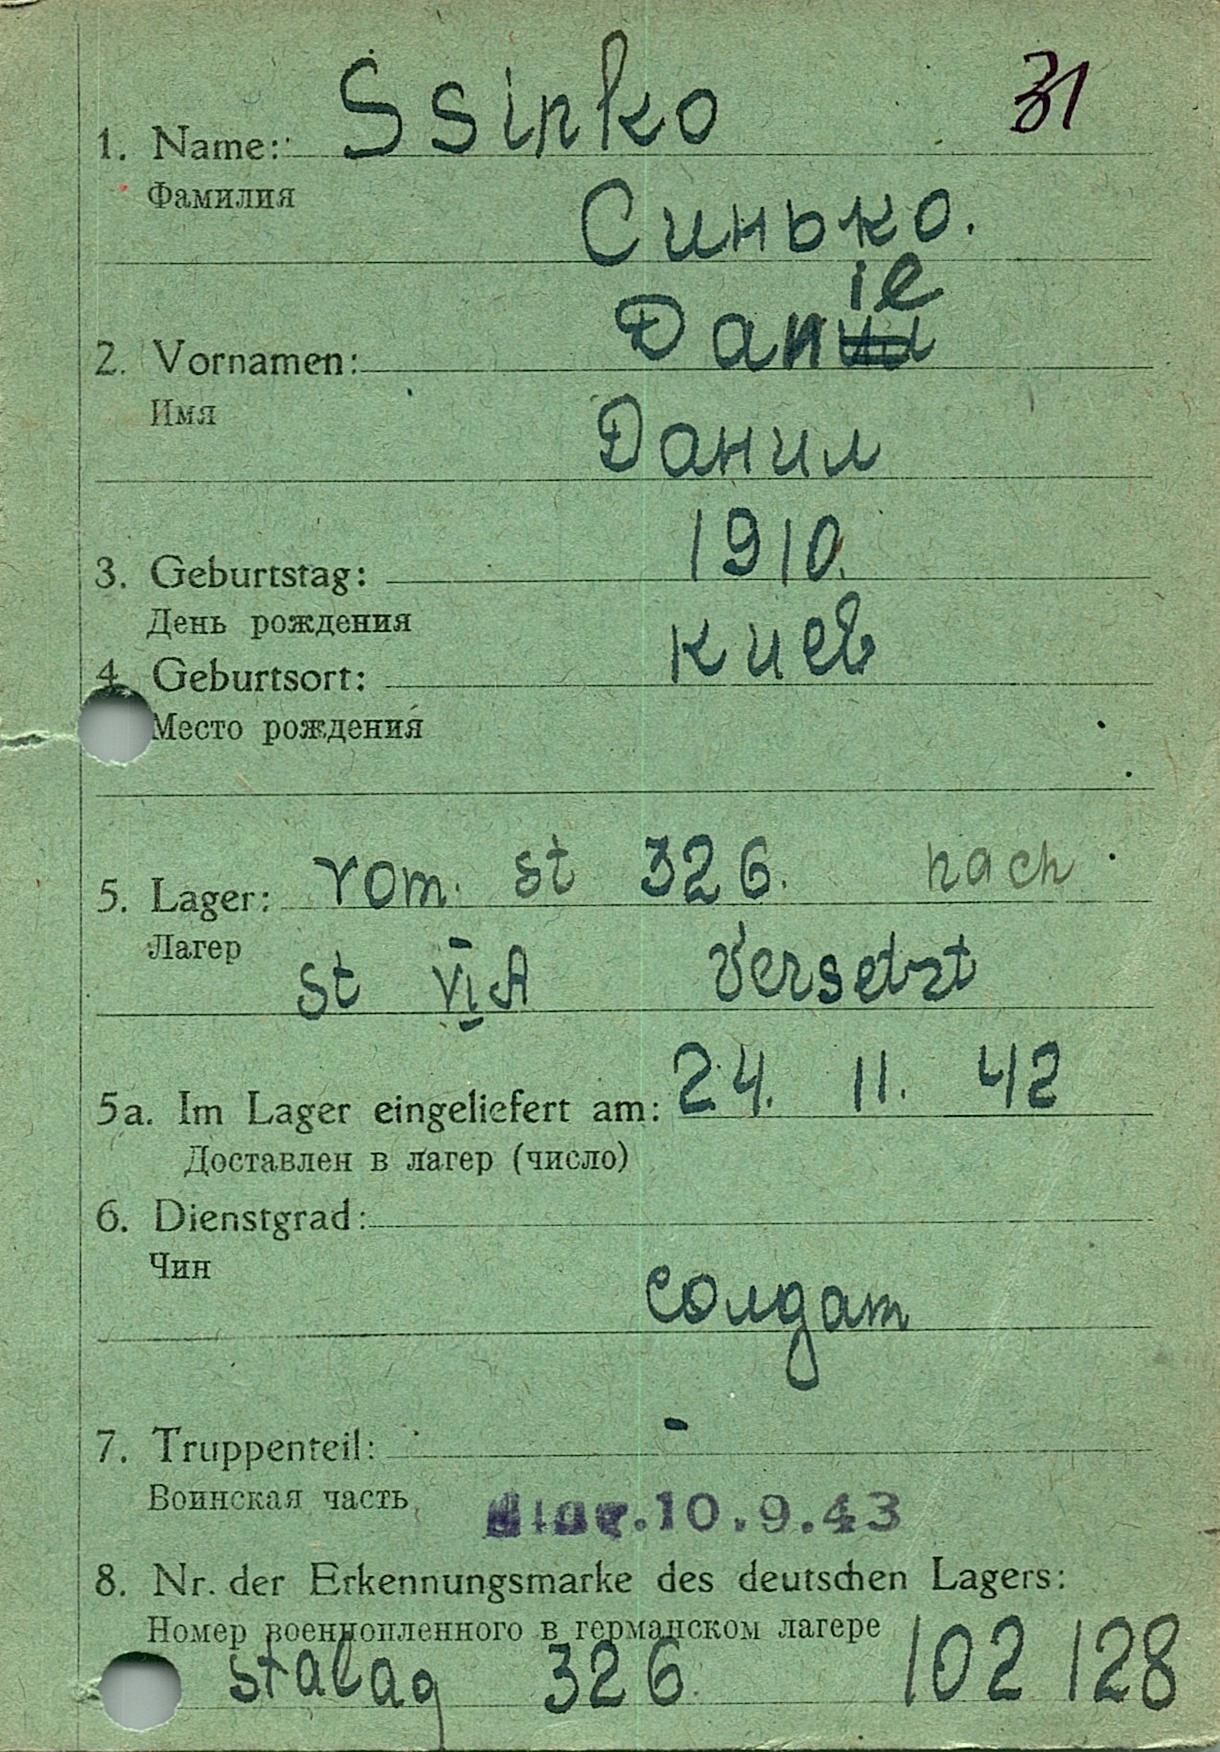 31
1. Name: Ssinko
Фамилия
Синько.
ie
2. Vornamen: Dan
Имя
Данил
3. Geburtstag: 1910.
День рождения
4. Geburtsort: Киев
Место рождения
5. Lager: vom. st 326. nach
Лагер
st VI A versetzt
5a. Im Lager eingeliefert am: 24. 11. 42
Доставлен в лагер (число)
6. Dienstgrad:
Чин
солдат
7. Truppenteil: -
Воинская часть
.10.9.43
8. Nr. der Erkennungsmarke des deutschen Lagers:
Номер военнопленного в германском лагере
stalag 326. 102 128